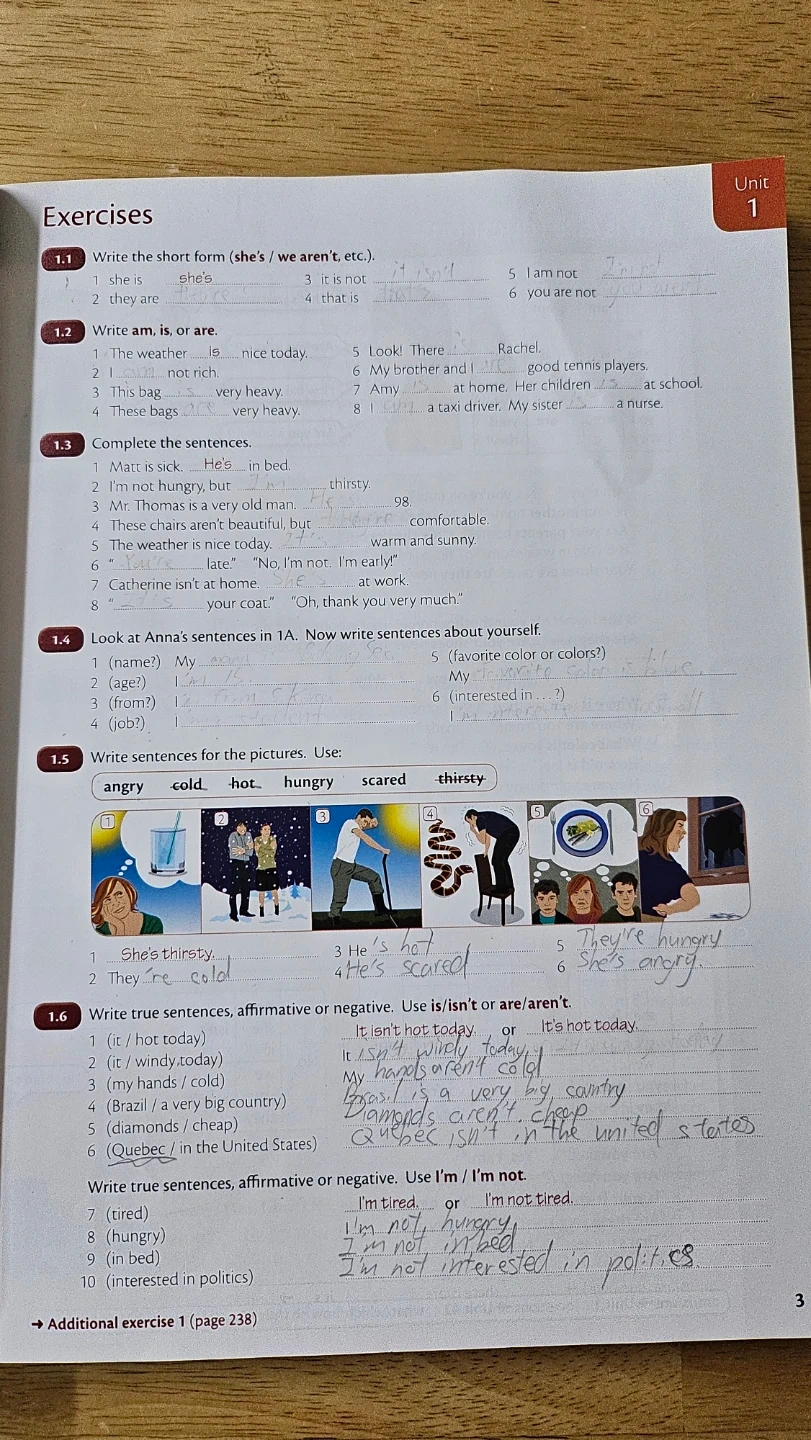 Unit
1
Exercises
1.1 Write the short form (she's / we aren't, etc.).
1 she is she's 3 it is not it isn't 5 I am not
2 they are 4 that is that's 6 you are not
1.2 Write am, is, or are.
1 The weather is nice today. 5 Look! There Rachel.
2 I am not rich. 6 My brother and I good tennis players.
3 This bag is very heavy. 7 Amy is at home. Her children at school.
4 These bags are very heavy. 8 I am a taxi driver. My sister is a nurse.
1.3 Complete the sentences.
1 Matt is sick. He's in bed.
2 I'm not hungry, but I'm thirsty.
3 Mr. Thomas is a very old man. 98.
4 These chairs aren't beautiful, but comfortable.
5 The weather is nice today. It's warm and sunny.
6 "You're late." "No, I'm not. I'm early!"
7 Catherine isn't at home. She's at work.
8 " your coat." "Oh, thank you very much."
1.4 Look at Anna's sentences in 1A. Now write sentences about yourself.
1 (name?) My 5 (favorite color or colors?)
2 (age?) I My favorite color is
3 (from?) I 6 (interested in . . . ?)
4 (job?) I I'm
1.5 Write sentences for the pictures. Use:
angry cold hot hungry scared thirsty
1 2 3 4 5 6
1 She's thirsty. 3 He's hot 5 They're hungry
2 They're cold 4 He's scared 6 She's angry.
1.6 Write true sentences, affirmative or negative. Use is/isn't or are/aren't.
1 (it / hot today) It isn't hot today. or It's hot today.
2 (it / windy today) It isn't windy today.
3 (my hands / cold) My hands aren't cold
4 (Brazil / a very big country) Brasil is a very big country
5 (diamonds / cheap) Diamonds aren't cheap
6 (Quebec / in the United States) Quebec isn't in the united states
Write true sentences, affirmative or negative. Use I'm / I'm not.
7 (tired) I'm tired. or I'm not tired.
8 (hungry) I'm not hungry
9 (in bed) I'm not in bed
10 (interested in politics) I'm not interested in politics
3
→ Additional exercise 1 (page 238)